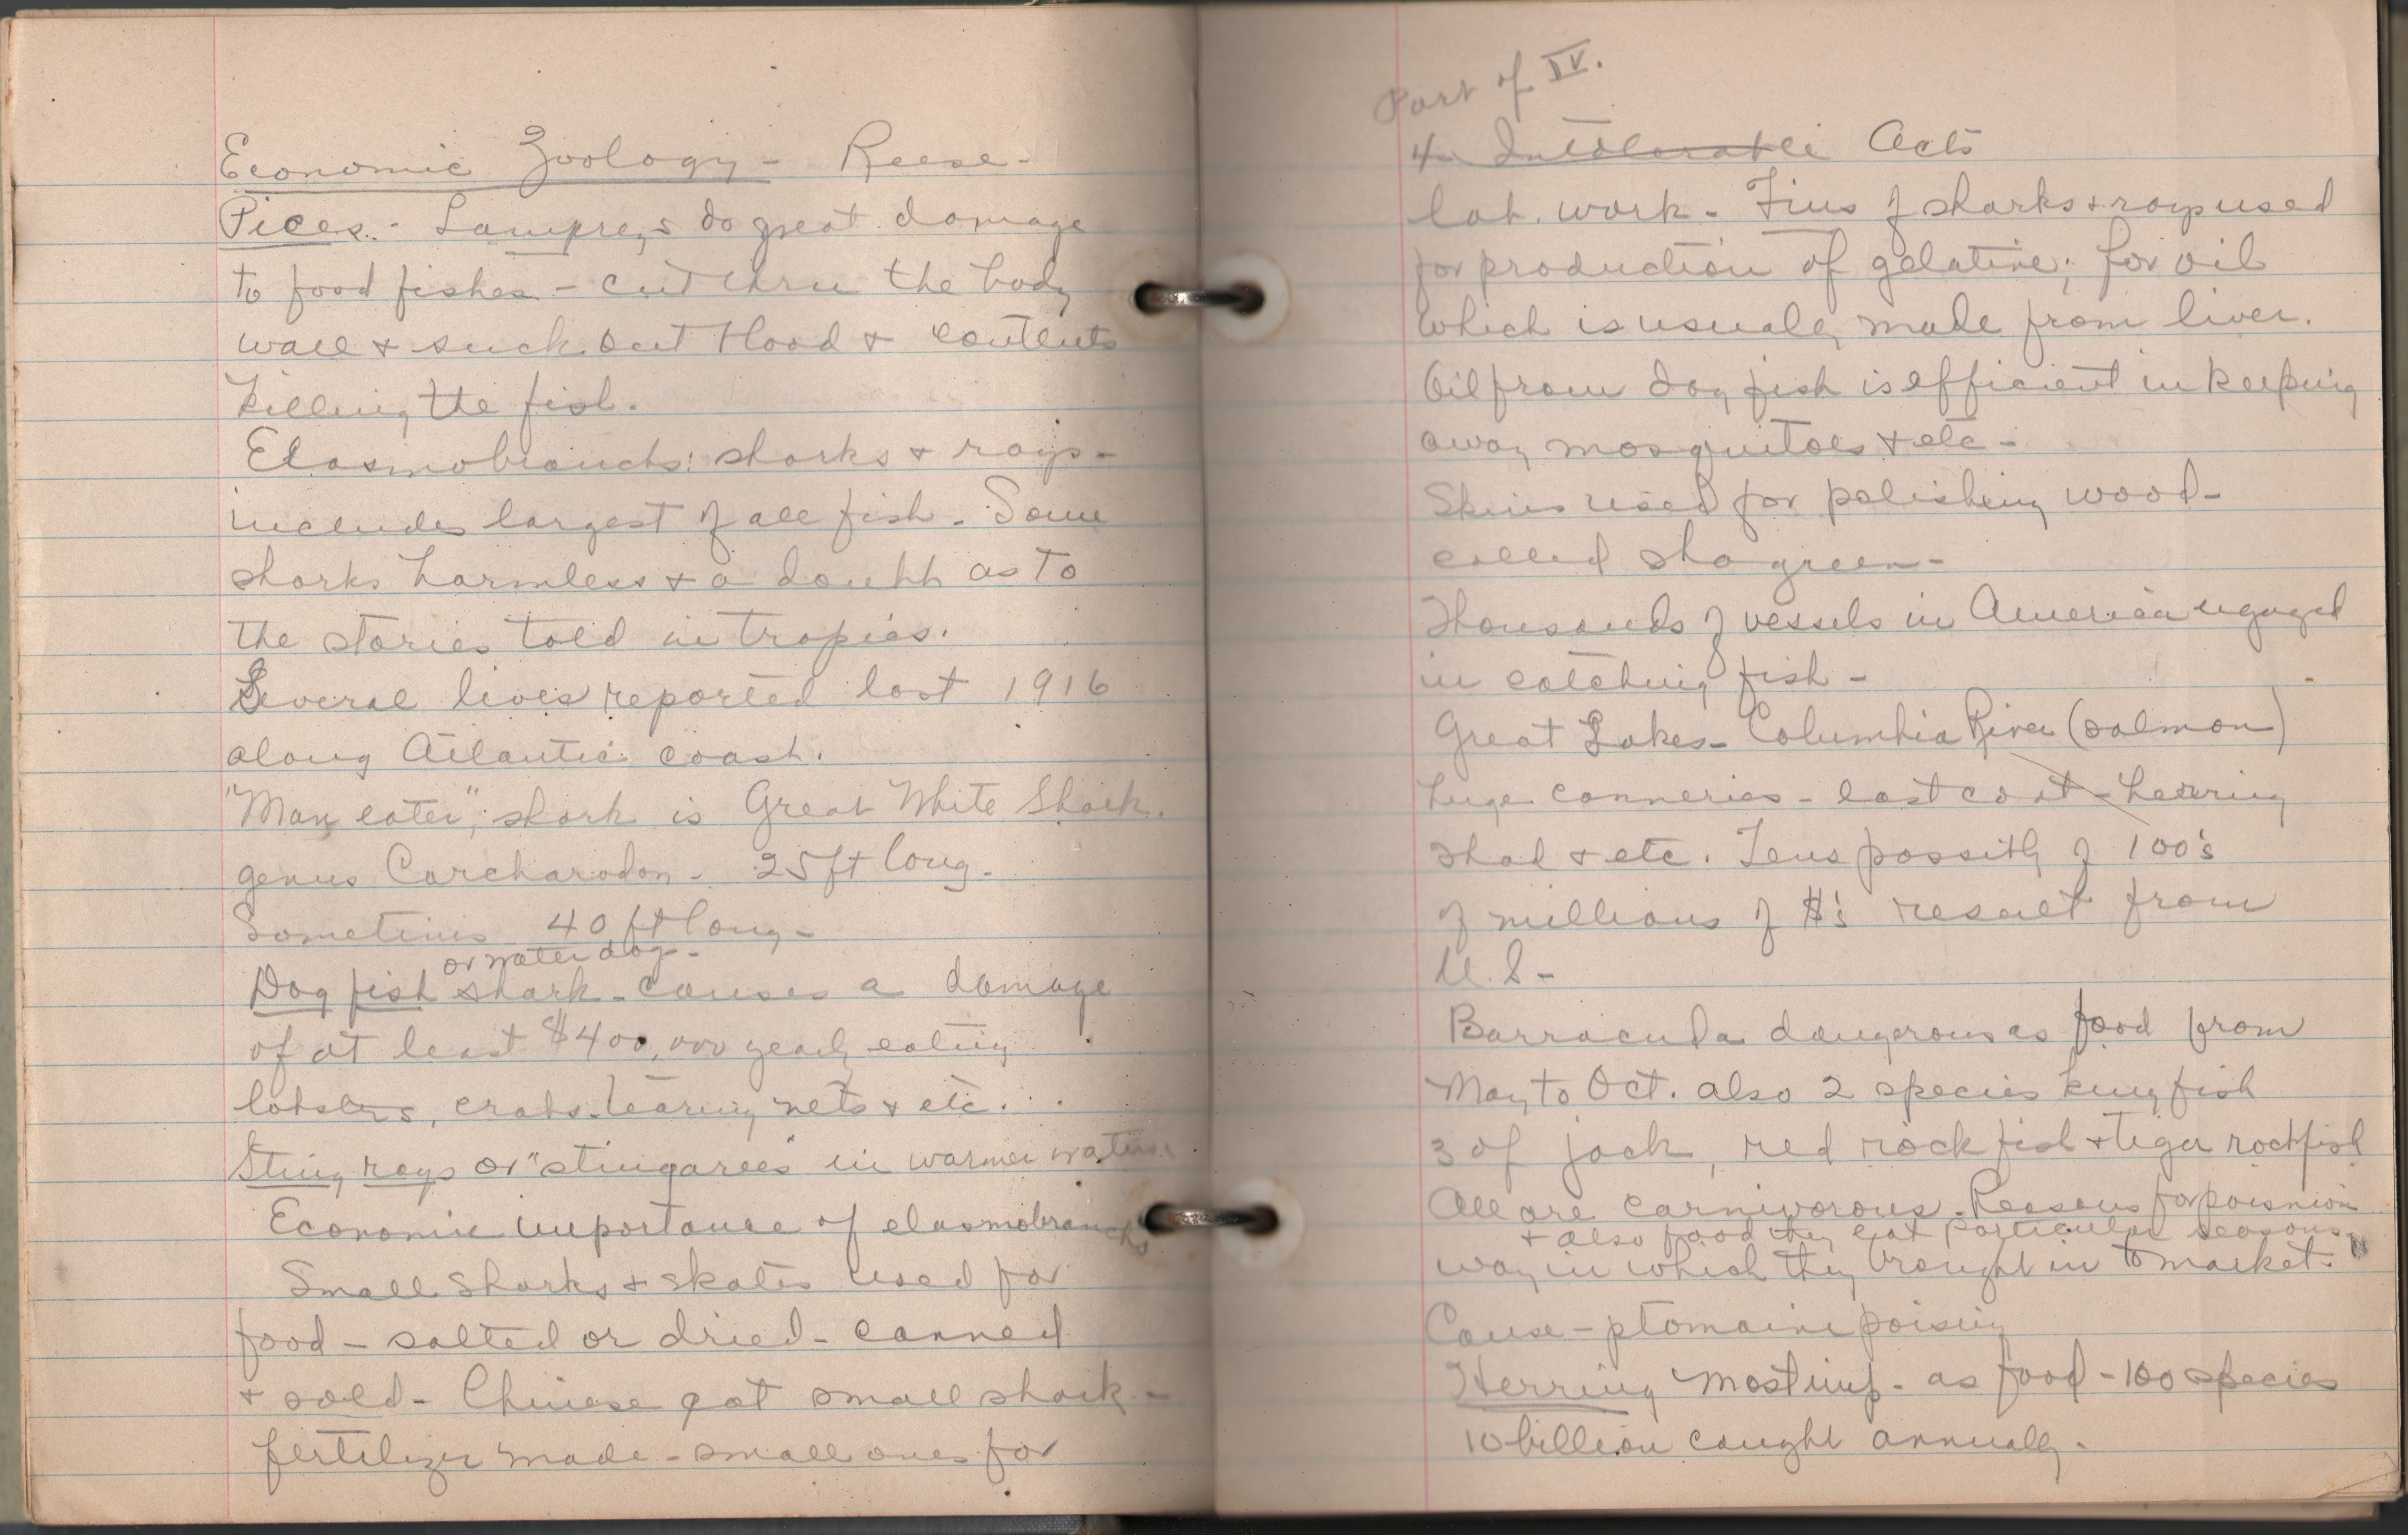 Economic Zoology - Reese -
Pices. - Lampreys do great damage
to food fishes - cut thru the body
wall & suck out blood & contents
killing the fish.
Elasmobranchs: sharks & rays -
includes largest of all fish. Some
sharks harmless & a doubt as to
the stories told in tropics.
Several lives reported lost 1916
along Atlantic coast.
"Man eater", shark is Great White Shark.
genus Carcharodon - 25 ft long -
Sometimes 40 ft long -
or water dog -
Dog fish shark - causes a damage
of at least $400,000 yearly eating
lobsters, crabs. tearing nets & etc.
Sting rays or "stingarees" in warmer waters.
Economic importance of elasmobranchs
Small sharks & skates used for
food - salted or dried - canned
& sold - Chinese eat small shark -
fertilizer made - small ones for
Part of IV.
4 Intolerable Acts
lab. work - Fins of sharks & rays used
for production of gelatine; for oil
which is usually made from liver.
Oil from dog fish is efficient in keeping
away mosquitoes & etc -
Skins used for polishing wood -
called shagreen -
Thousands of vessels in America engaged
in catching fish -
Great Lakes - Columbia River (salmon)
huge canneries - east coast - herring
shad & etc. Tens possibly of 100's
of millions of $'s result from
U.S -
Barracuda dangerous as food from
May to Oct. also 2 species king fish
3 of jack, red rock fish & tiger rockfish
All are carnivorous. Reasons for poisnion
& also food they eat particular seasons.
way in which they brought in to market.
Cause - ptomaine poising
Herring most imp. as food - 100 species
10 billion caught annually.